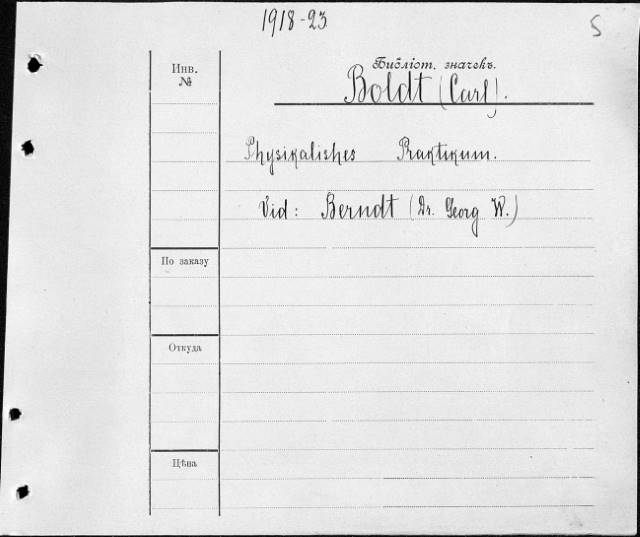 1918-23
5
Инв.
№
Библіот. значекъ.
Boldt (Carl).
Physikalishes Praktikum.
Vid: Berndt (Dr. Georg W.)
По заказу
Откуда
Цѣна